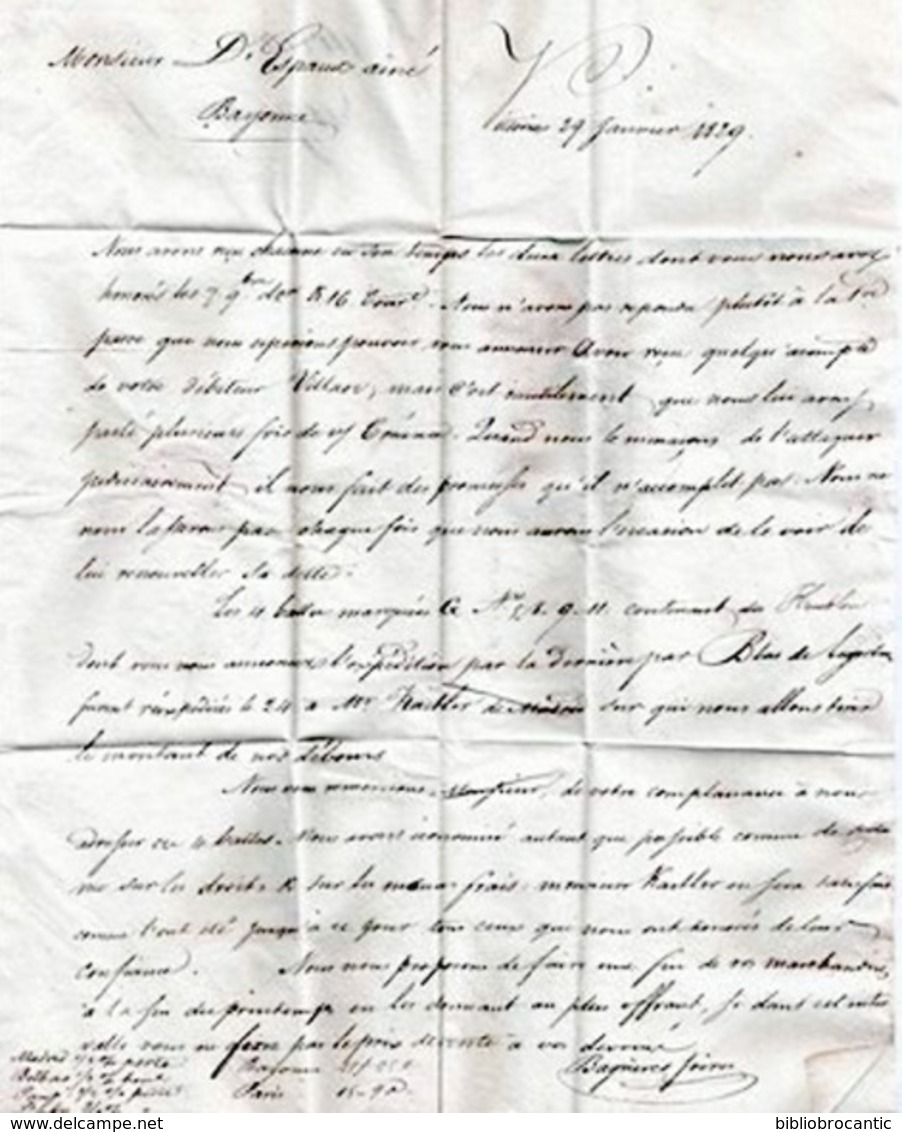 Monsieur D. Espaux ainé
Bayonne
29 Janvier 1829.
Nous avons reçu chacune en son temps les deux lettres dont vous nous avez
honorés les 7 9bre der & 16 Cour. Nous n'avons pas repondu plutôt à la
parce que nous esperions pouvoir vous annoncer avoir reçu quelqu'acompte
de votre débiteur Villaor, mais c'est inutilement que nous lui avons
parlé plusieurs fois de v/ Créance. Quand nous le menaçons de l'attaquer
judiciairement il nous fait des promesses qu'il n'accomplit pas. Nous ne
nous lassarons pas chaque fois que nous aurons l'occasion de le voir de
lui renouveller sa dette.
Les 4 balles marquées G Nos 8. 9. 11. contenant du
dont vous nous annoncez l'expédition par la dernière par Blas de
furent réexpédiées le 24 à Mr. Kaibler sur qui nous allons tirer
le montant de nos débours
Nous vous remercions, Monsieur, de votre complaisance à nous
adresser ces 4 balles. Nous avons économisé autant que possible comme de
sur les droits & sur les menus frais; monsieur Kaibler en sera satisfait
comme l'ont été jusqu'à ce jour tous ceux que nous ont honorés de leur
confiance. Nous nous proposons de faire une fin de vos marchandises
à la fin du printemps en les donnant au plus offrant, si dans cet inter
valle vous ne fixez pas le prix de vente à vos dévoués
Bagneres frères
Madrid perte
Bayonne
Bilbao
Paris 15-90
bibliobrocantic